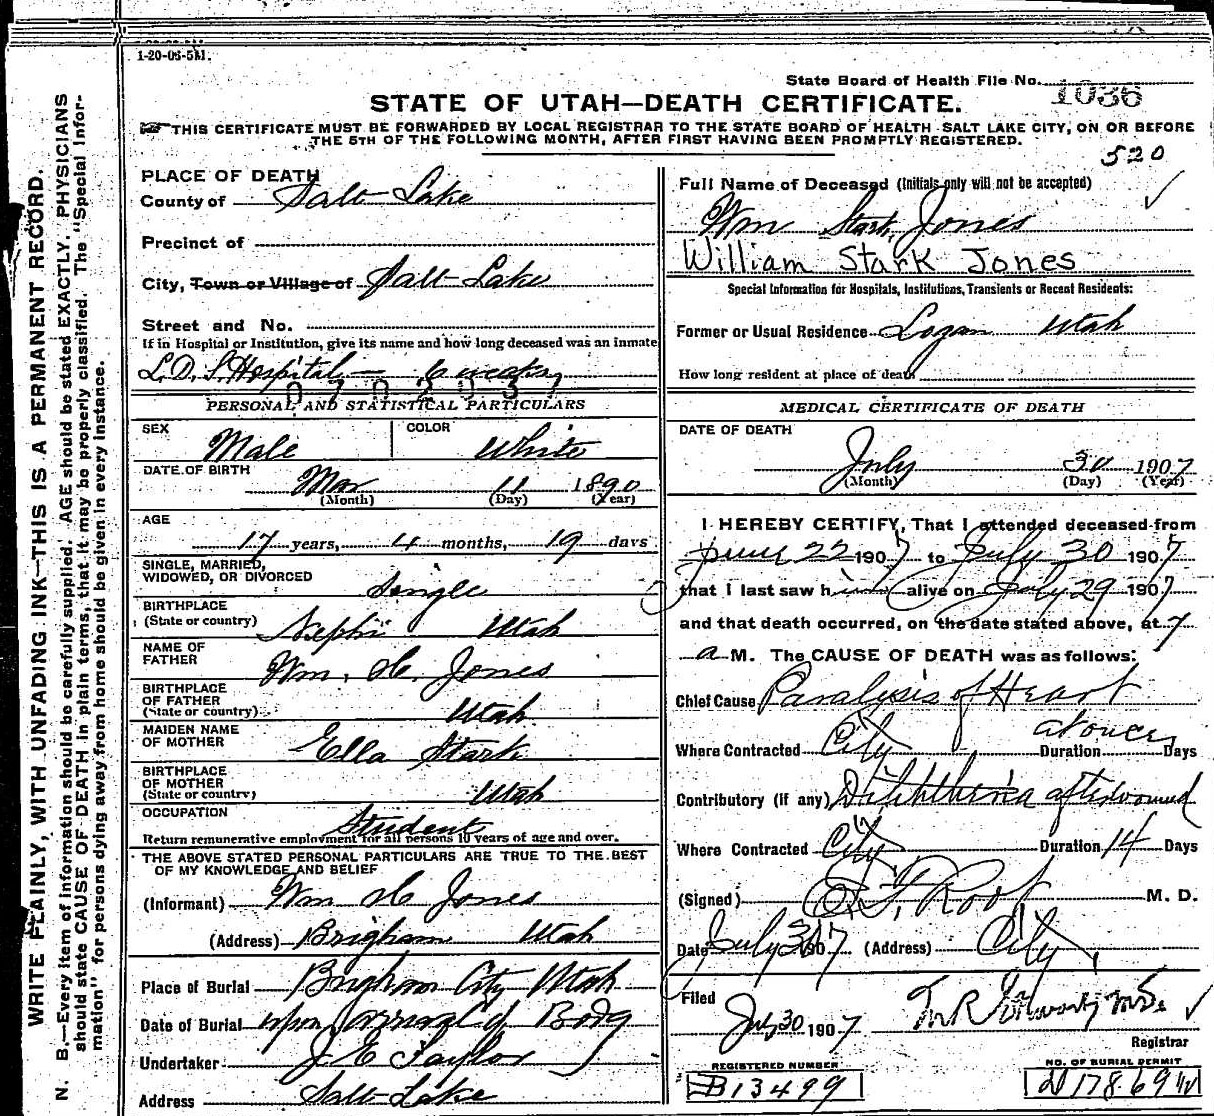 1-20-06-5M.
State Board of Health File No. 1036
STATE OF UTAH—DEATH CERTIFICATE.
THIS CERTIFICATE MUST BE FORWARDED BY LOCAL REGISTRAR TO THE STATE BOARD OF HEALTH SALT LAKE CITY, ON OR BEFORE
THE 5TH OF THE FOLLOWING MONTH, AFTER FIRST HAVING BEEN PROMPTLY REGISTERED.
520
WRITE PLAINLY, WITH UNFADING INK—THIS IS A PERMANENT RECORD.
N. B.—Every item of information should be carefully supplied. AGE should be stated EXACTLY. PHYSICIANS
should state CAUSE OF DEATH in plain terms, that it may be properly classified. The "Special Infor-
mation" for persons dying away from home should be given in every instance.
PLACE OF DEATH
County of Salt Lake
Precinct of
City, Town or Village of Salt Lake
Street and No.
If in Hospital or Institution, give its name and how long deceased was an inmate
L. D. S. Hospital — 6 weeks
PERSONAL AND STATISTICAL PARTICULARS
SEX Male COLOR White
DATE OF BIRTH Mar 11 1890
(Month) (Day) (Year)
AGE
17 years, 4 months, 19 days
SINGLE, MARRIED,
WIDOWED, OR DIVORCED Single
BIRTHPLACE
(State or country) Nephi Utah
NAME OF
FATHER Wm. H. Jones
BIRTHPLACE
OF FATHER
(State or country) Utah
MAIDEN NAME
OF MOTHER Ella Stark
BIRTHPLACE
OF MOTHER
(State or country) Utah
OCCUPATION
Student
Return remunerative employment for all persons 10 years of age and over.
THE ABOVE STATED PERSONAL PARTICULARS ARE TRUE TO THE BEST
OF MY KNOWLEDGE AND BELIEF
(Informant) Wm H Jones
(Address) Brigham Utah
Place of Burial Brigham City Utah
Date of Burial upon arrival of Body
Undertaker J E Taylor
Address Salt Lake
Full Name of Deceased (Initials only will not be accepted)
Wm Stark Jones
William Stark Jones
Special Information for Hospitals, Institutions, Transients or Recent Residents:
Former or Usual Residence Logan Utah
How long resident at place of death
MEDICAL CERTIFICATE OF DEATH
DATE OF DEATH
July 30 1907
(Month) (Day) (Year)
I HEREBY CERTIFY, That I attended deceased from
June 22 1907 to July 30 1907
that I last saw him alive on July 29 1907
and that death occurred, on the date stated above, at 7
a M. The CAUSE OF DEATH was as follows:
Chief Cause Paralysis of Heart
Where Contracted City Duration at once Days
Contributory (if any) Diphtheria
Where Contracted City Duration 14 Days
(Signed) M. D.
Date July 30 1907 (Address) City
Filed
July 30 1907
Registrar
REGISTERED NUMBER
B13499
NO. OF BURIAL PERMIT